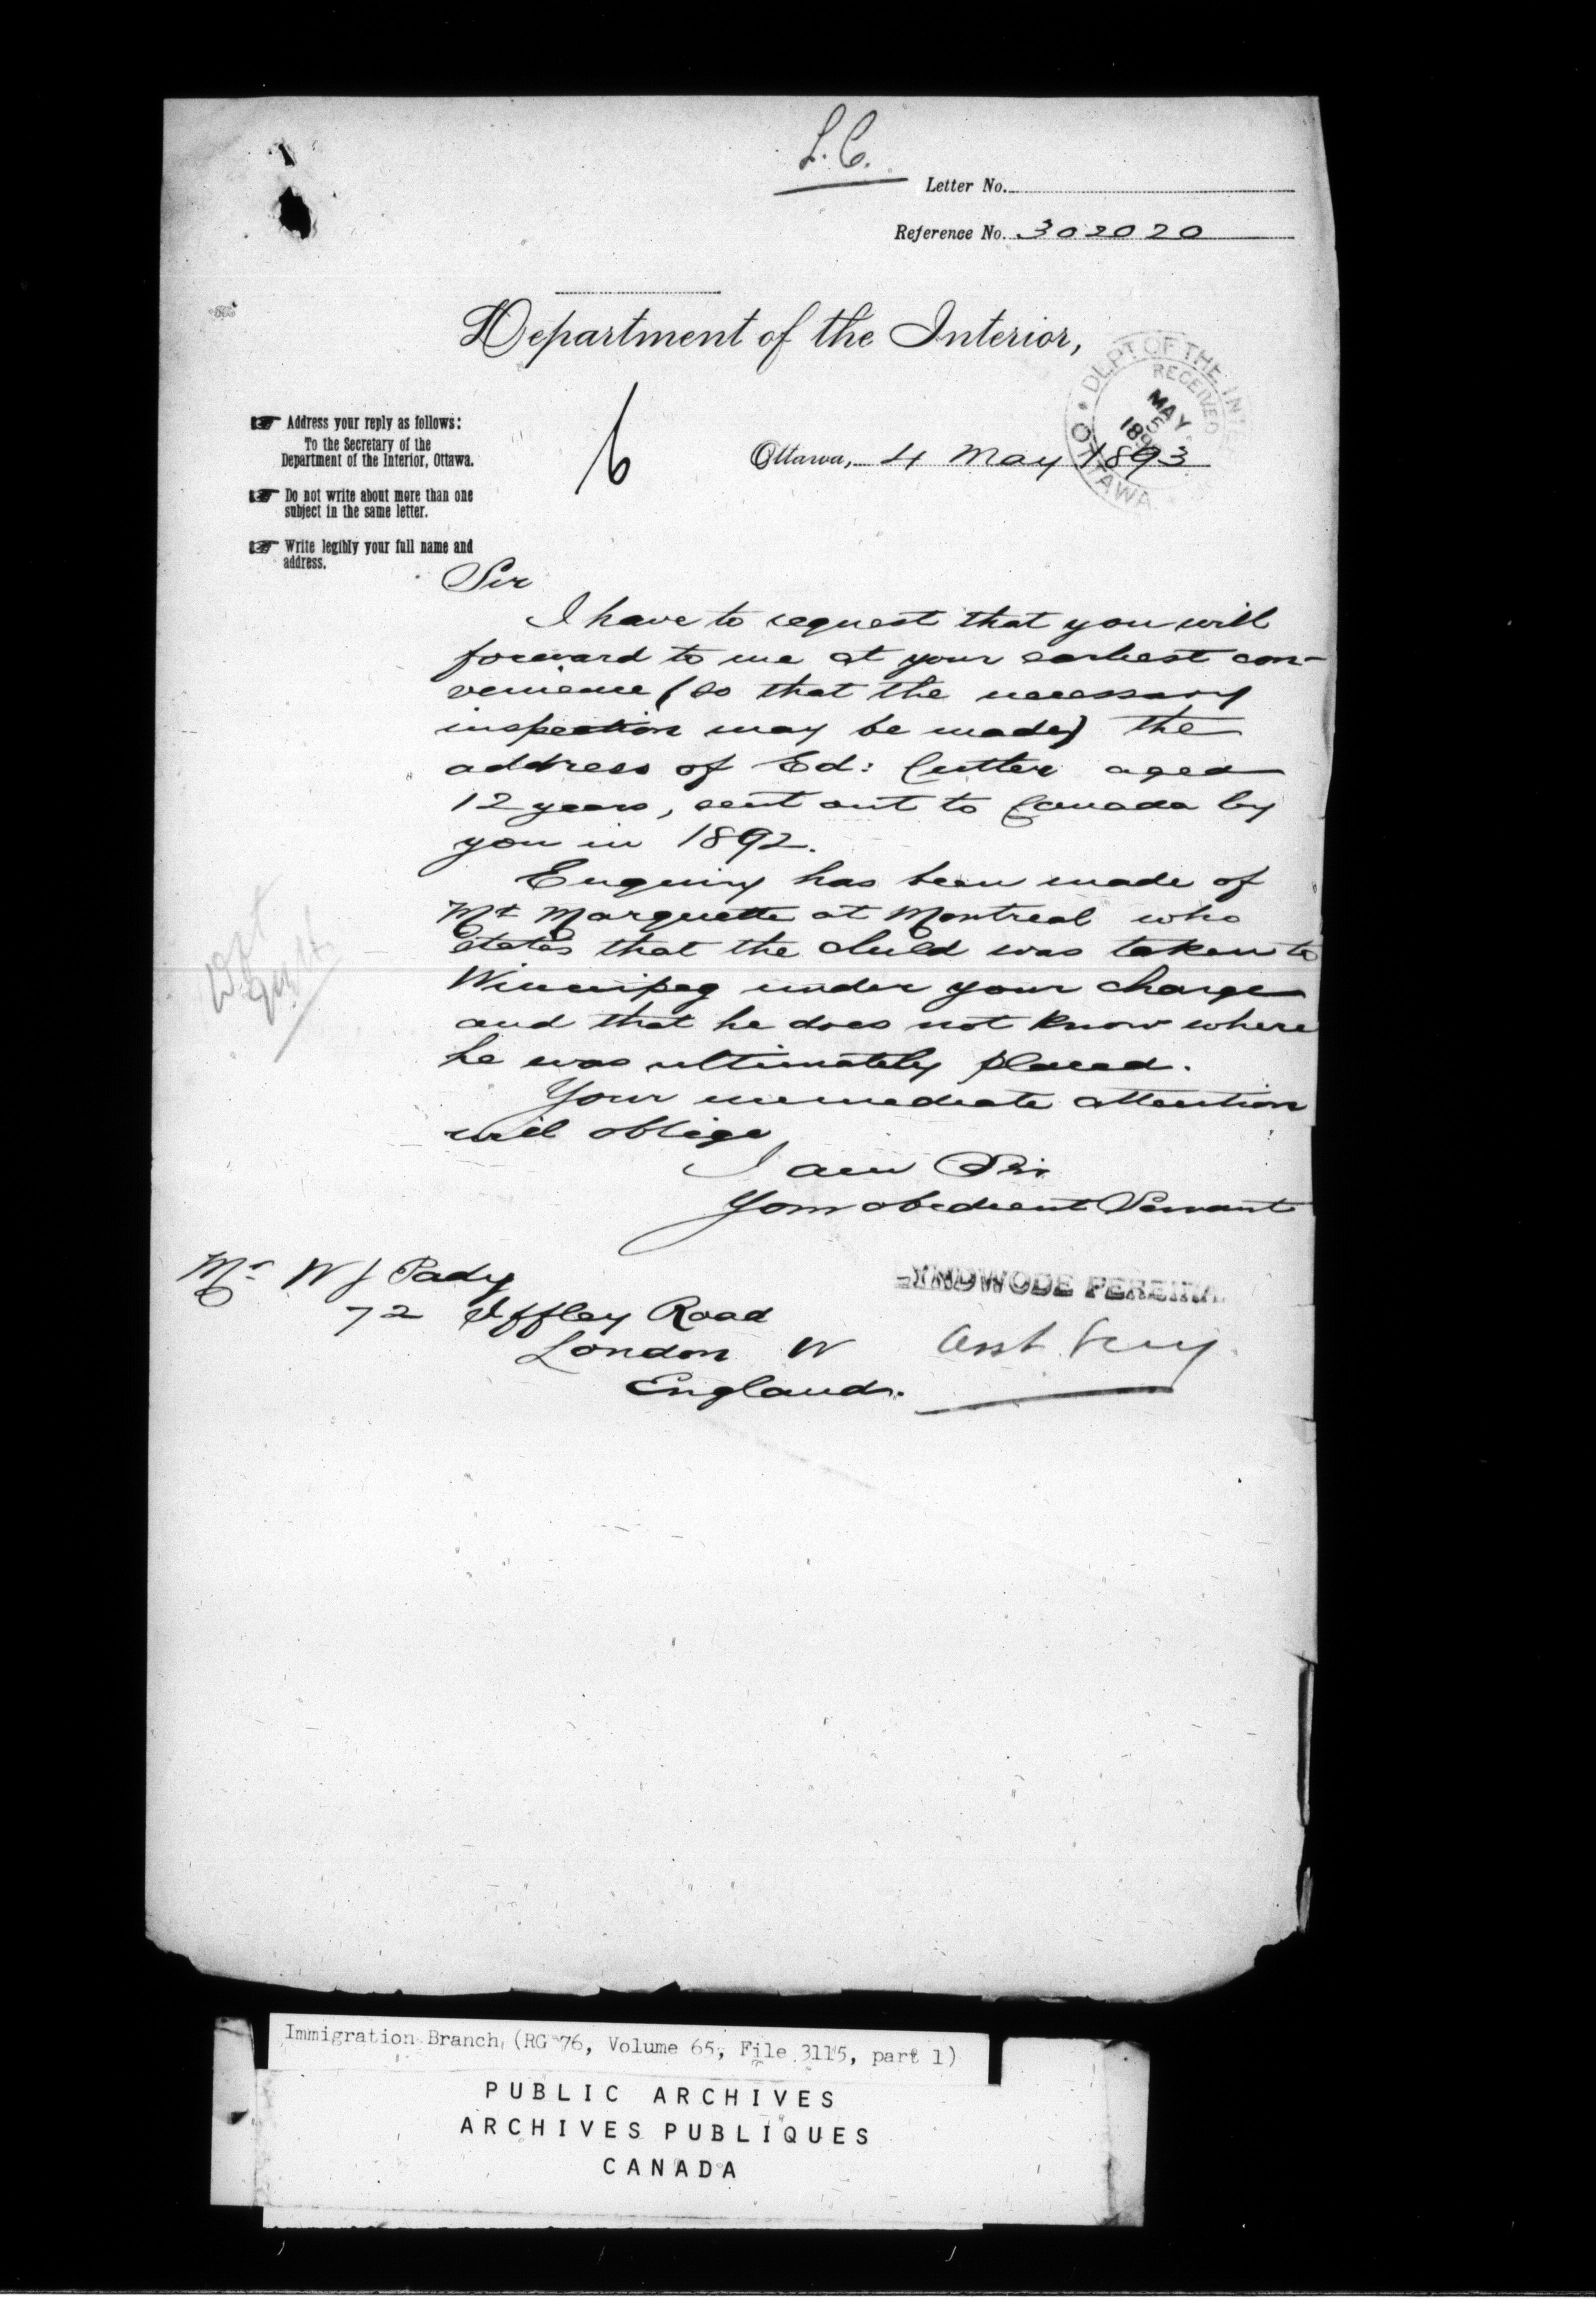 L.C.
Letter No.
Reference No. 302020
Department of the Interior,
DEPT OF THE INTE
RECEIVED
MAY
5
1893
OTTAWA
Address your reply as follows:
To the Secretary of the
Department of the Interior, Ottawa.
Do not write about more than one
subject in the same letter.
Write legibly your full name and
address.
6
Ottawa, 4 May 1893
Sir
I have to request that you will
forward to me at your earliest con-
venience (so that the necessary
inspection may be made) the
address of Ed: Cutter aged
12 years, sent out to Canada by
you in 1892.
Enquiry has been made of
Mr Marquette at Montreal who
states that the child was taken to
Winnipeg under your charge
and that he does not know where
he was ultimately placed.
Your immediate attention
will oblige
I am Sir
Your obedient Servant
Mr W J Pady
72 Iffley Road
London W
England.
LYNDWODE PEREIRA
Asst. Secy.
Immigration Branch (RG 76, Volume 65, File 3115, part 1)
PUBLIC ARCHIVES
ARCHIVES PUBLIQUES
CANADA